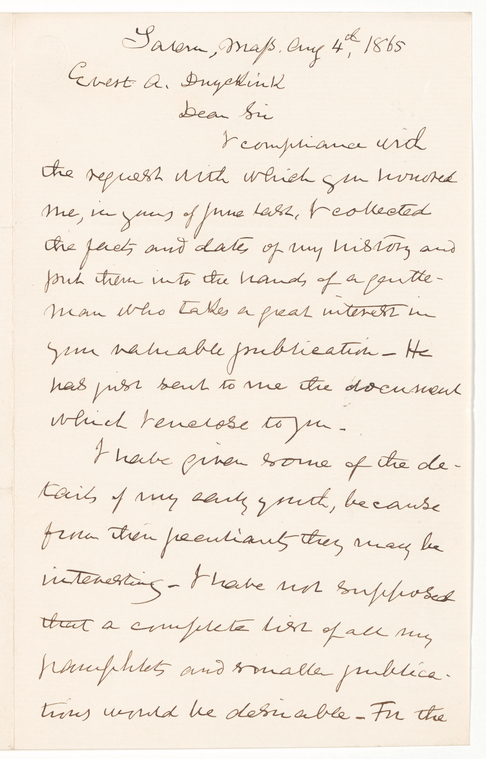 Salem, Mass. Aug 4th, 1865
Evert A. Duyckink
Dear Sir
I compliance with
the request with which you honored
me, in yours of June last, I collected
the facts and dates of my history and
put them into the hands of a gentle-
man who takes a great interest in
your valuable publication - He
has just sent to me the document
which I enclose to you -
I have given some of the de-
tails of my early youth, because
from their peculiarity they may be
interesting - I have not supposed
that a complete list of all my
pamphlets and smaller publica-
tions would be desirable - For the